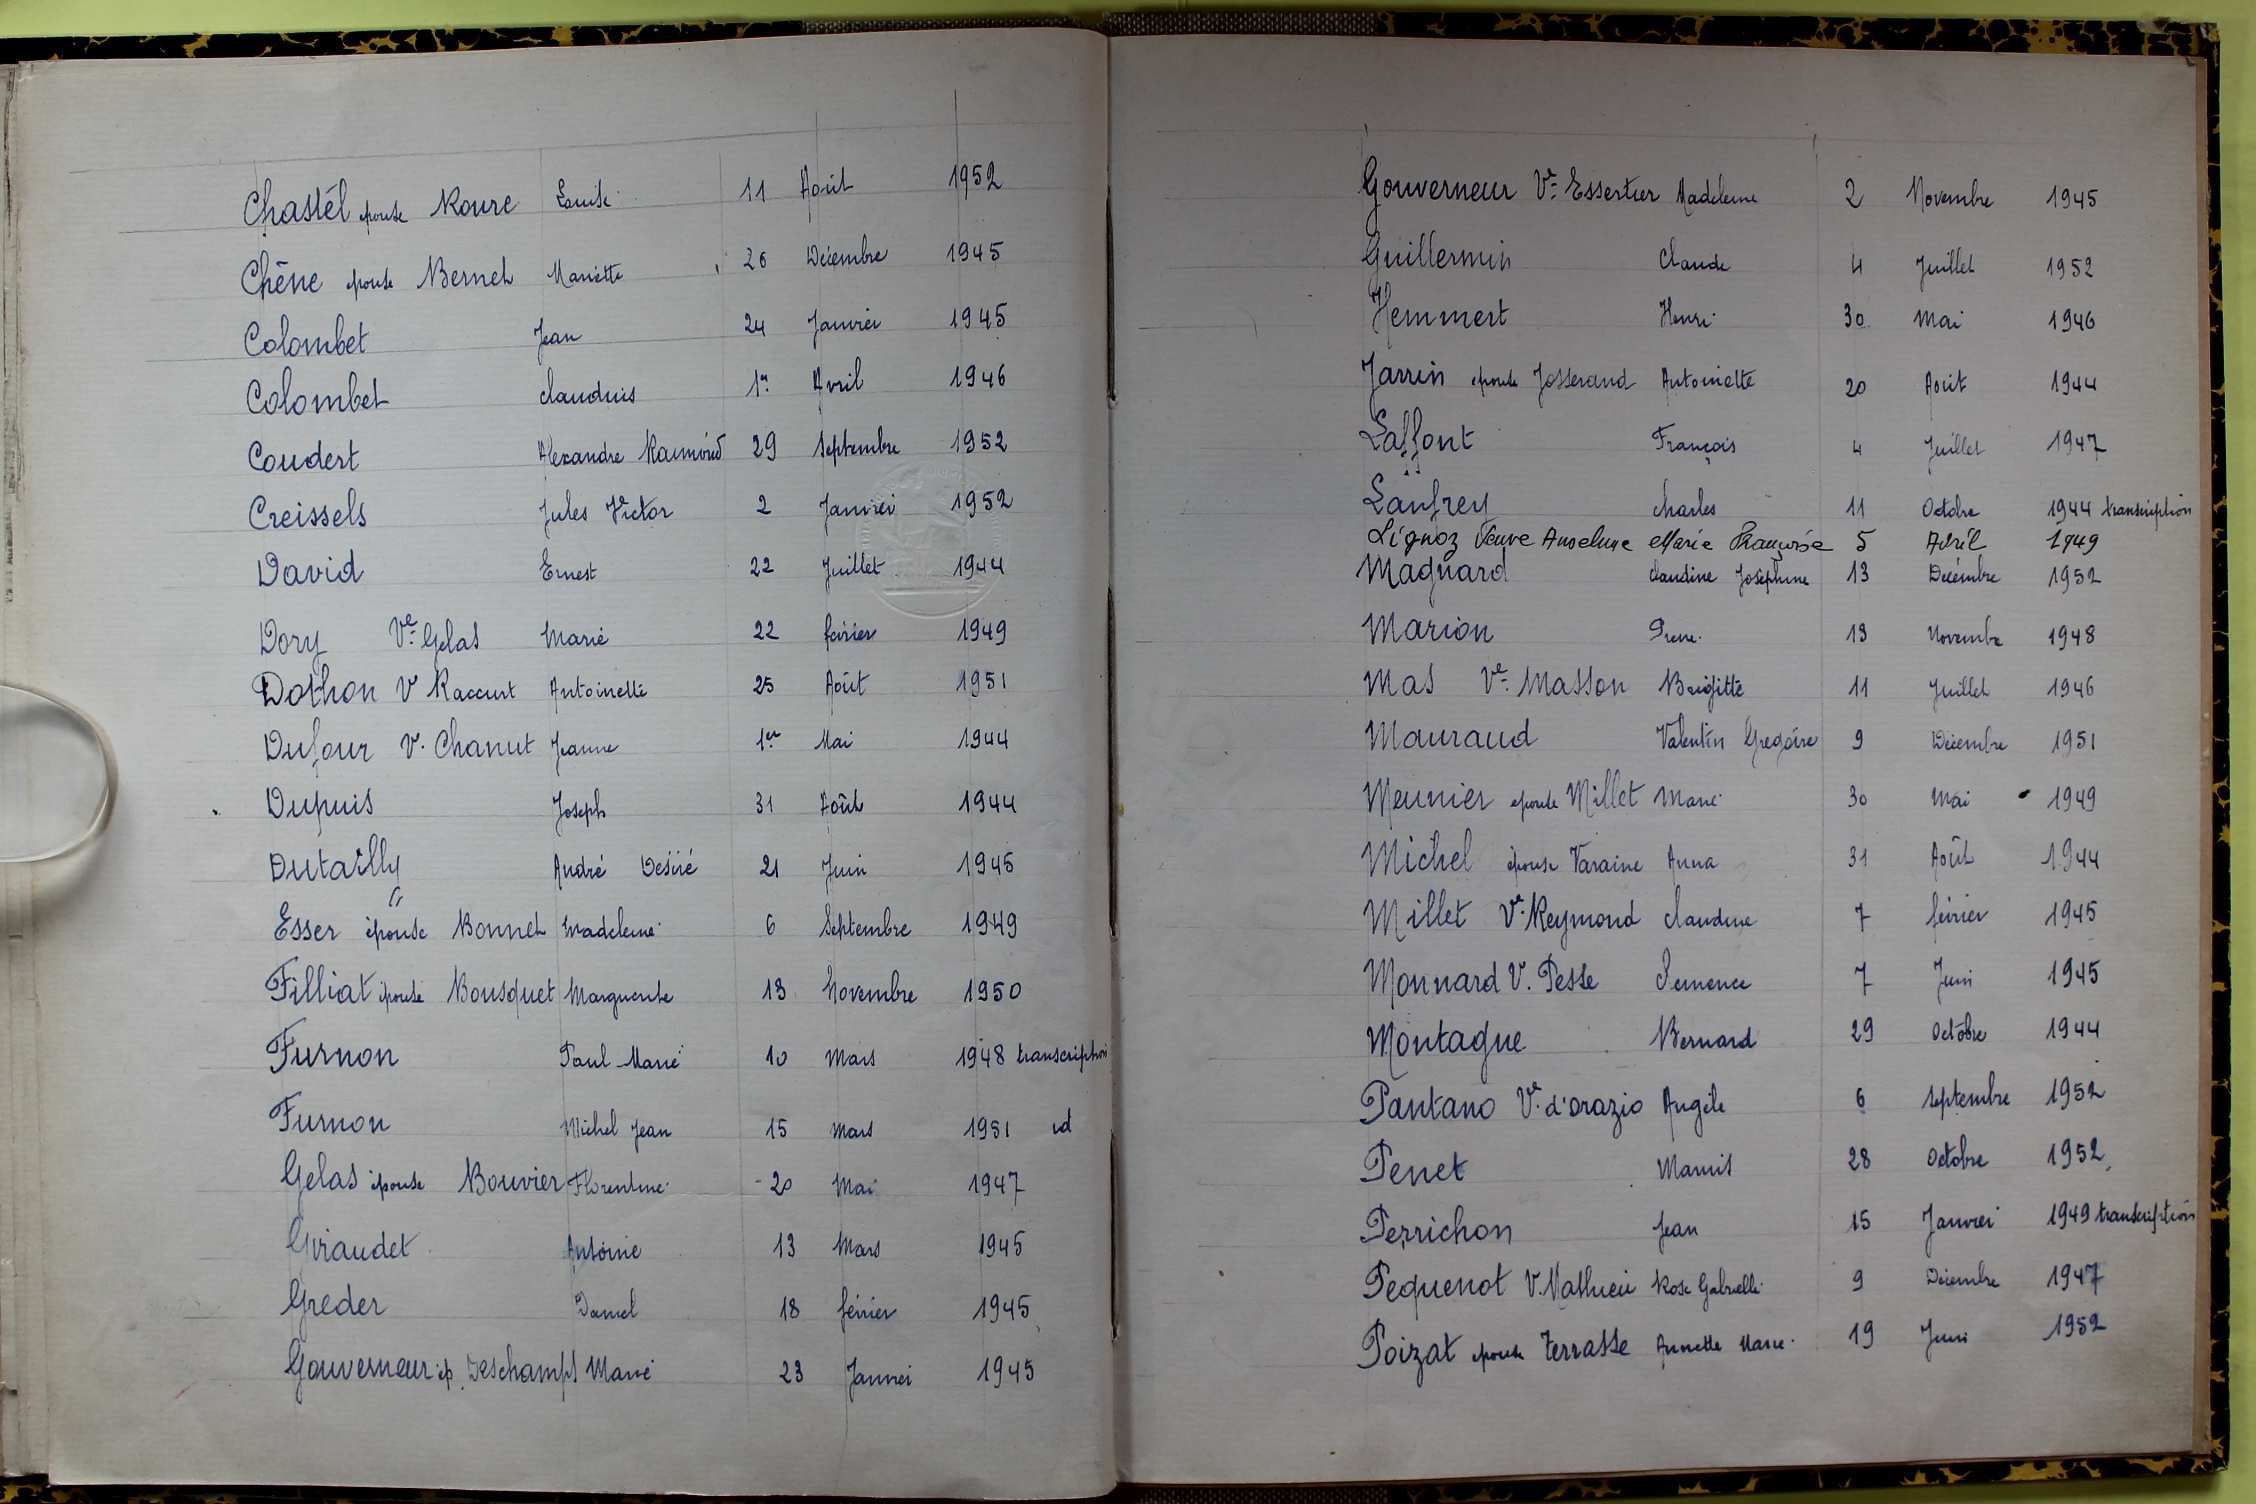 Chastel epouse Roure Louise 11 Août 1952
Chêne epouse Bernet Mariette 26 Décembre 1945
Colombet Jean 24 Janvier 1945
Colombet claudius 1er Avril 1946
Coudert Alexandre Raimond 29 Septembre 1952
Creissels Jules Victor 2 Janvier 1952
David Ernest 22 Juillet 1944
Dory Ve Gelas Marie 22 février 1949
Dothon V Raccurt Antoinette 25 Août 1951
Dufour V. Chanut Jeanne 1er Mai 1944
Dupuis Joseph 31 Août 1944
Dutailly André Désiré 21 Juin 1945
Esser épouse Bonnet Madeleine 6 Septembre 1949
Filliat épouse Bousquet Marguerite 13 Novembre 1950
Furnon Paul Marie 10 Mars 1948 transcription
Furnon Michel Jean 15 Mars 1951 id
Gelas épouse Bouvier Florentine 20 Mai 1947
Giraudet Antoine 13 Mars 1945
Greder Daniel 18 février 1945
Gouverneur ép. Deschamps Marie 23 Janvier 1945
Gouverneur Ve Essertier Madeleine 2 Novembre 1945
Guillermin Claude 4 Juillet 1952
Hemmert Henri 30 Mai 1946
Jarrin epouse Josserand Antoinette 20 Août 1944
Laffont François 4 Juillet 1947
Lanfrey charles 11 Octobre 1944 transcription
Lignoz Veuve Anselme Marie Françoise 5 Avril 1949
Magnard Claudine Joséphine 13 Décembre 1952
Marion 13 Novembre 1948
Mas Ve Masson Brigitte 11 Juillet 1946
Mauraud Valentin Grégoire 9 Décembre 1951
Meunier epouse Millet Marie 30 Mai 1949
Michel épouse Varaine Anna 31 Août 1944
Millet Ve Reymond Claudine 7 février 1945
Monnard V. Pesse 7 Juin 1945
Montague Bernard 29 Octobre 1944
Pantano Ve d'orazio Angèle 6 Septembre 1952
Penet Marius 28 Octobre 1952
Perrichon Jean 15 Janvier 1949 transcription
Pequenot V. Mathieu Rose Gabrielle 9 Décembre 1947
Poizat epouse Terrasse Annette Marie 19 Juin 1952